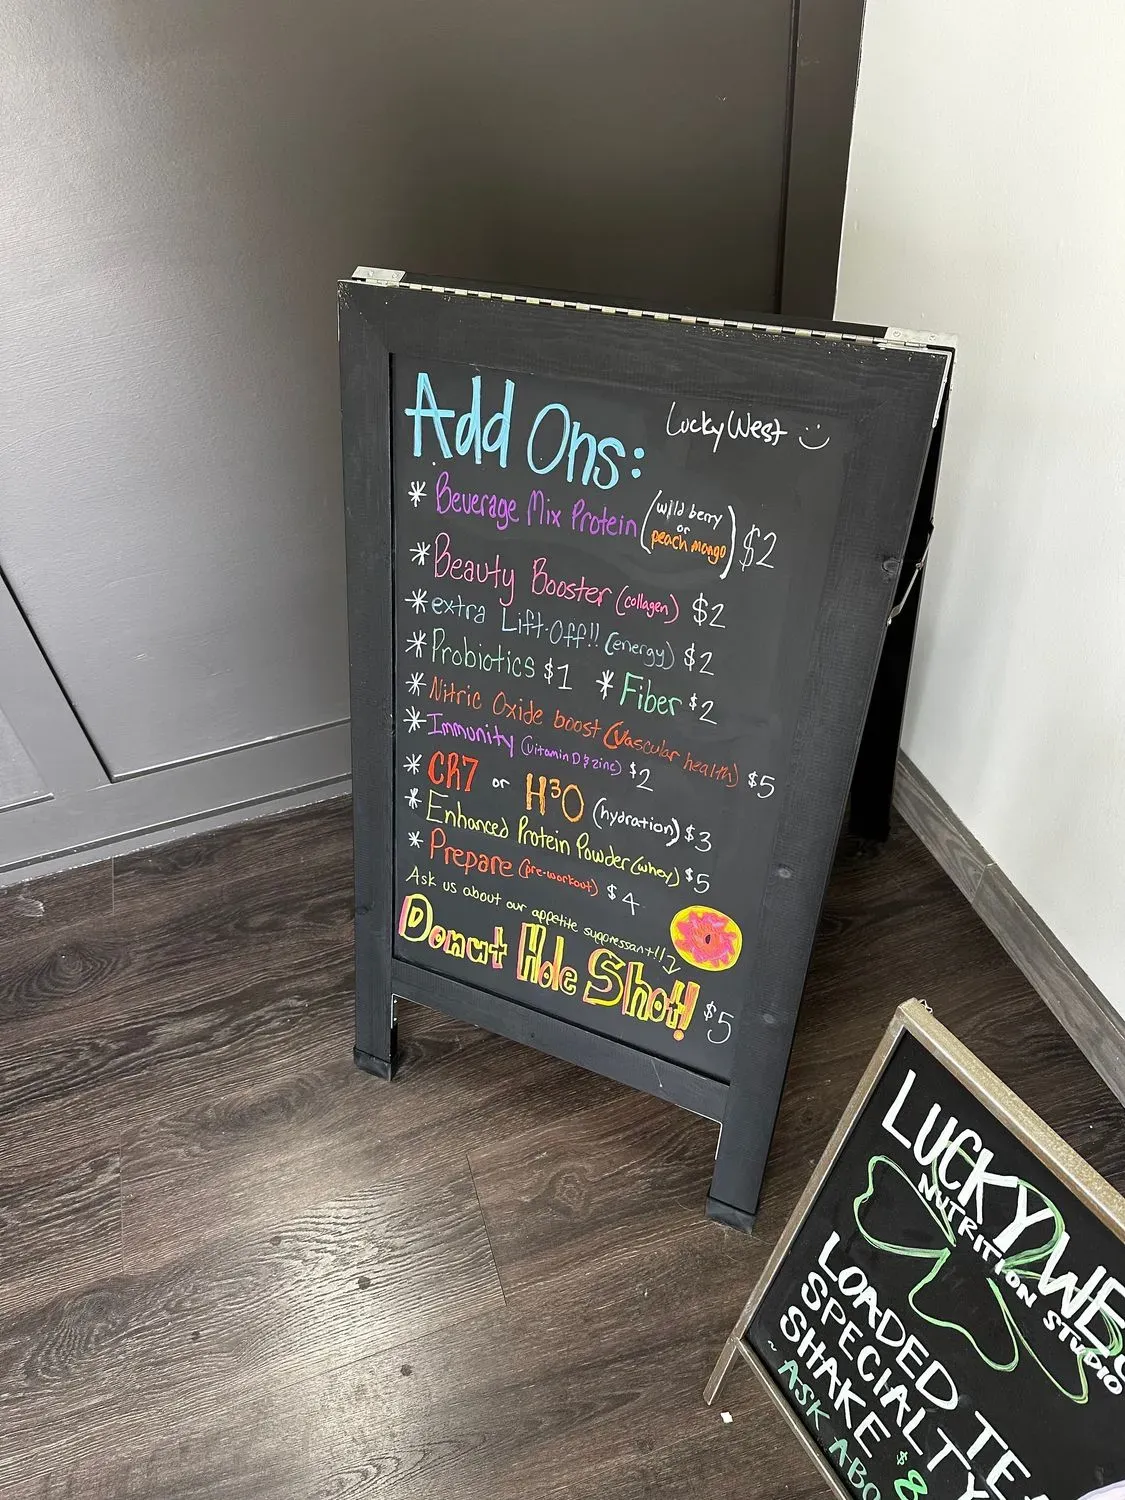 Add Ons:
Lucky West
* Beverage Mix Protein (wild berry or peach mango) $2
* Beauty Booster (collagen) $2
* extra Lift-Off!! (energy) $2
* Probiotics $1 * Fiber $2
* Nitric Oxide boost (Vascular health) $5
* Immunity (Vitamin D & zinc) $2
* CR7 or H³O (hydration) $3
* Enhanced Protein Powder (whey) $5
* Prepare (pre-workout) $4
Ask us about our appetite suppressant!!
Donut Hole Shot! $5
LUCKY
NUTRITION STUDIO
LOADED
SPECIALTY
SHAKE $8
~ASK